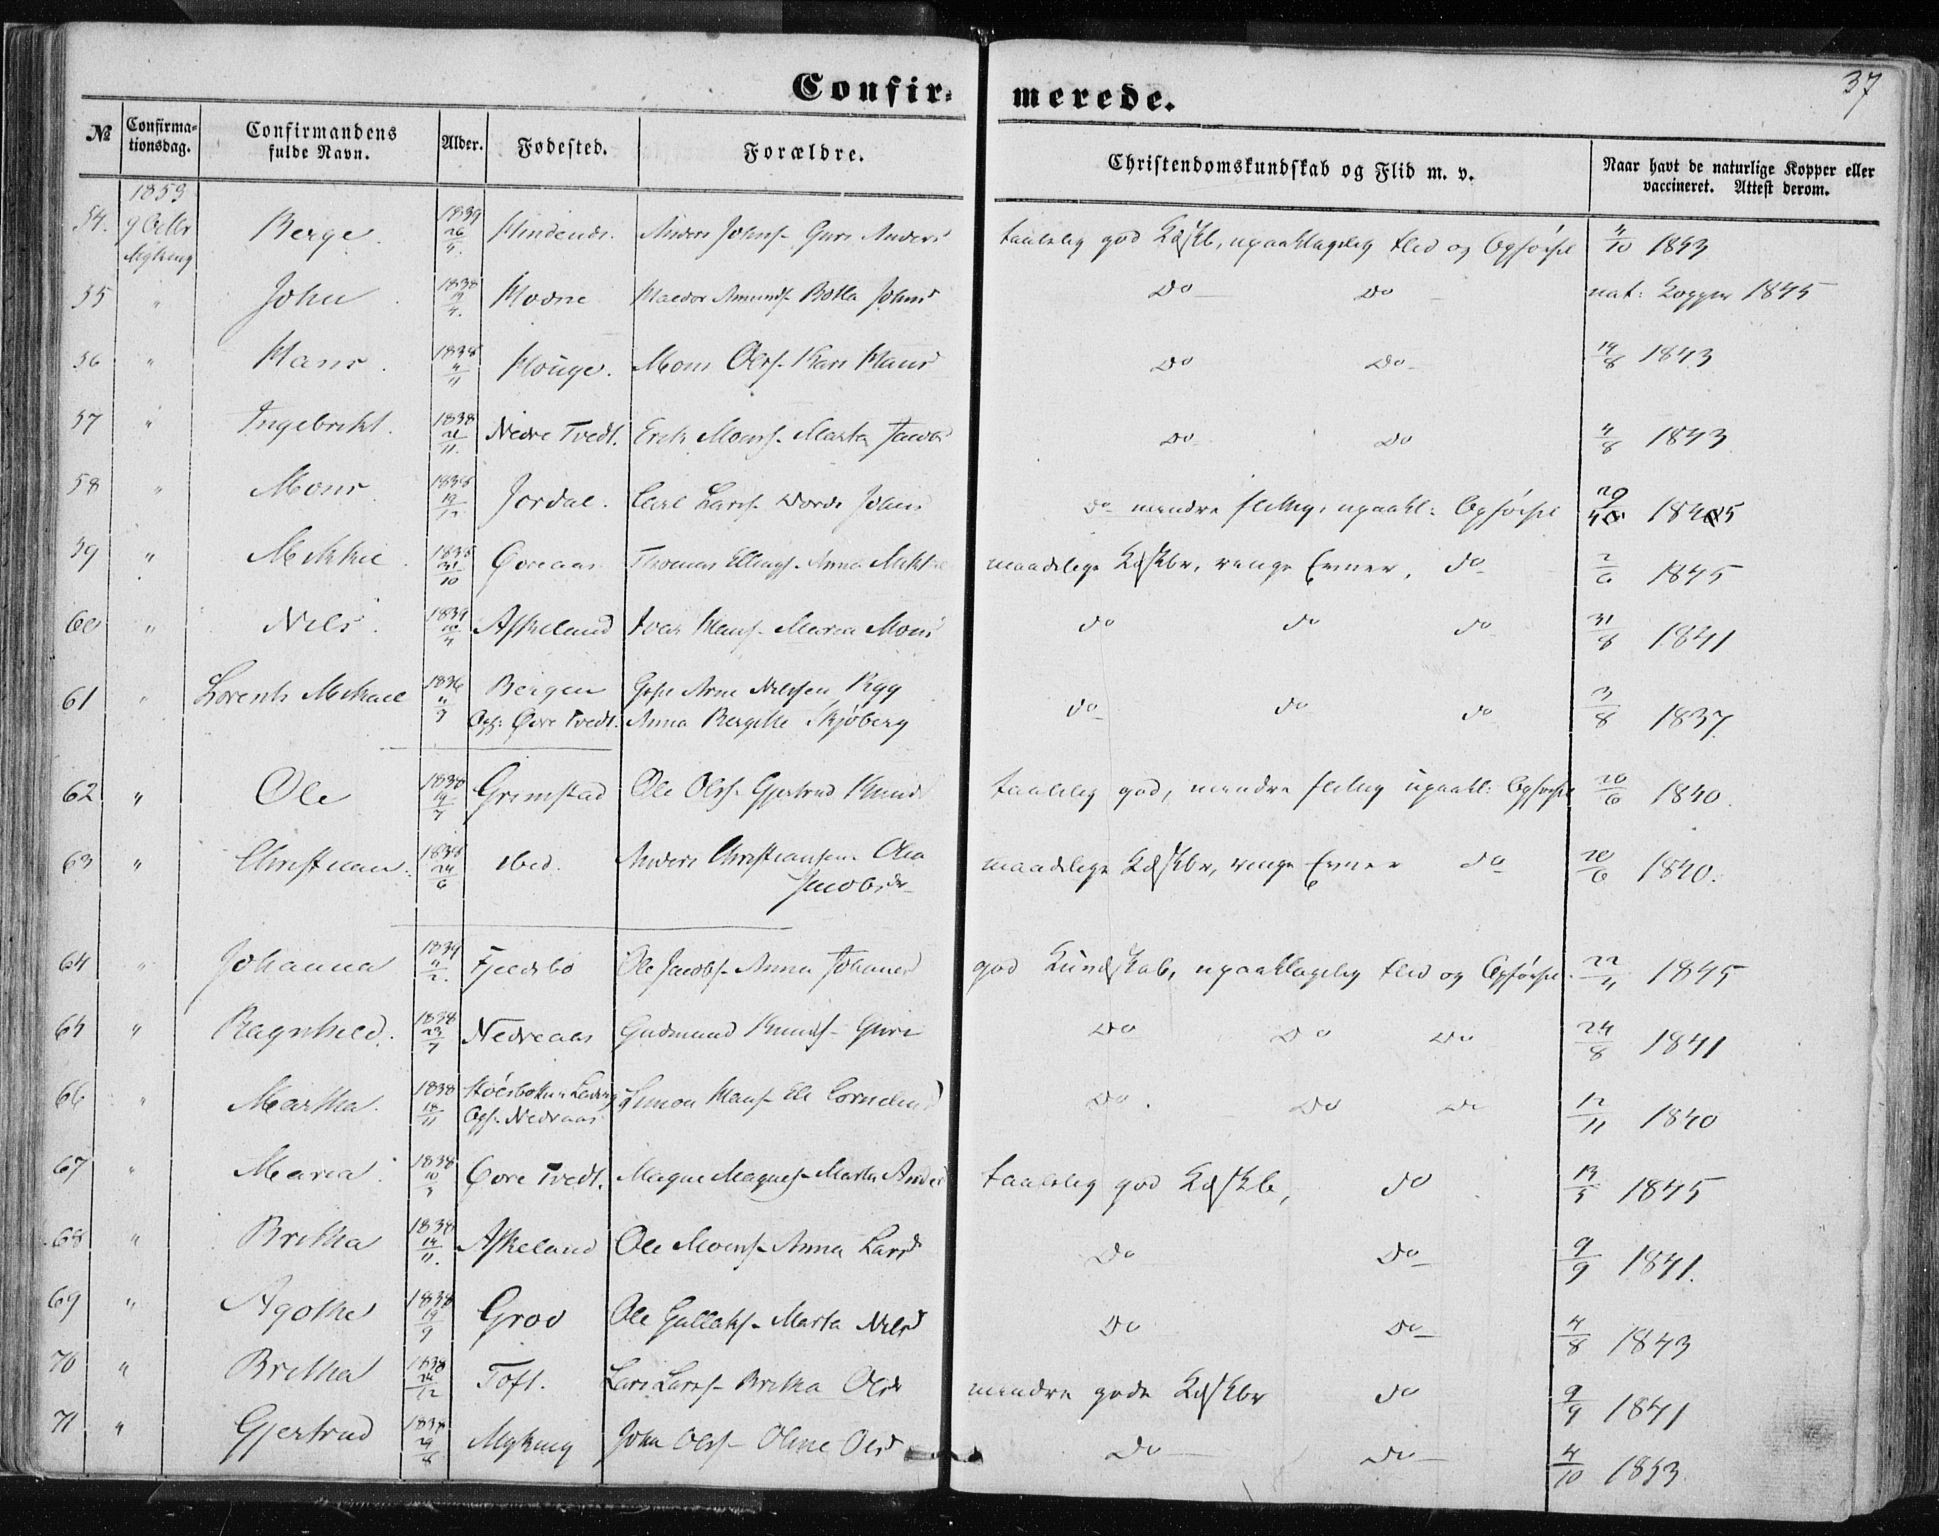 37
Confirmerede.
№ Confirmationsdag. Confirmandens fulde Navn. Alder. Fødested. Forældre. Christendomskundskab og Flid m. v. Naar havt de naturlige Kopper eller vaccineret. Attest derom.
1853
54. 9 Octbr Berge. 1839 26/5. Hindenes. Anders Johns. Guri Anders taalelig god Kdskb, upaaklagelig Flid og Opførsel 4/10 1853
Myking
55 " John. 1838 Hodne Haldor Amunds. Do Do nat: Kopper 1845
56 " Hans. 1838 /11 Houge. Mons Ols. Kari Hans Do Do 14/8 1843
57 " Ingebrikt. 1838 /11. Nedre Tvedt. Erik Mons. Marta Jacobs Do Do 4/8 1843
58 " Mons. 1838 19/12 Jordal. Carl Lars. Johns Do mindre flittig, upaakl: Opførsel 1845
59 " Mikkel. 1838 31/10 Øvreaas Thomas Ellings. Anna Mikkels maadelige Kdskbr, ringe Evner, do 2/6 1845
60 " Nils. 1839 Askeland Ivar Hans. Maria Mons do do do 31/8 1841
61 " Lorents Mikael 1836 Bergen Arne Nilssen
Ops: Øvre Tvedt. Anna Bergitte Skjøberg do do do 3/8 1837
62 " Ole 1838 19/7 Grimstad Ole Ols. Gjertrud Knuds taalelig god, mindre flittig upaakl: Opførsel 20/6 1840.
63 " Christian. 1838 24/6 ibid. Anders Christiansen Olia maadelige Kdskbr, ringe Evner do 20/6 1840.
Jacobsdr
64 " Johanna 1839 /2. Fjeldsbø Ole Jacobs. Anna Johannes god Kundskab, upaaklagelig Flid og Opførsel. 22/11 1845
65 " Ragnhild. 1838 23/7 Nedreaas Gudmund Knuds. Guri Do Do Do 24/8 1841
66 " Martha. 1838 18/11 Simon Hans. Eli Cornelius Do Do Do 12/11 1840
Ops. Nedreaas
67 " Maria. 1838 10/ Øvre Tvedt. Magne Magnes. Marta Anders taalelig god Kdskb, do 13/5 1845
68 " Britha 1838 14/11. Askeland Ole Mons. Anna Lars Do Do 9/9 1841.
69 " Agothe 1838 19/9 Grov Ole Gullaks. Marta Nils Do Do 4/8 1843
70 " Britha 1838 /12 Toft. Lars Lars. Britha Ols mindre gode Kdskbr do 9/9 1841
71 " Gjertrud 1838 29/8 Myking John Ols. Oline Ols Do Do 4/10 1853.